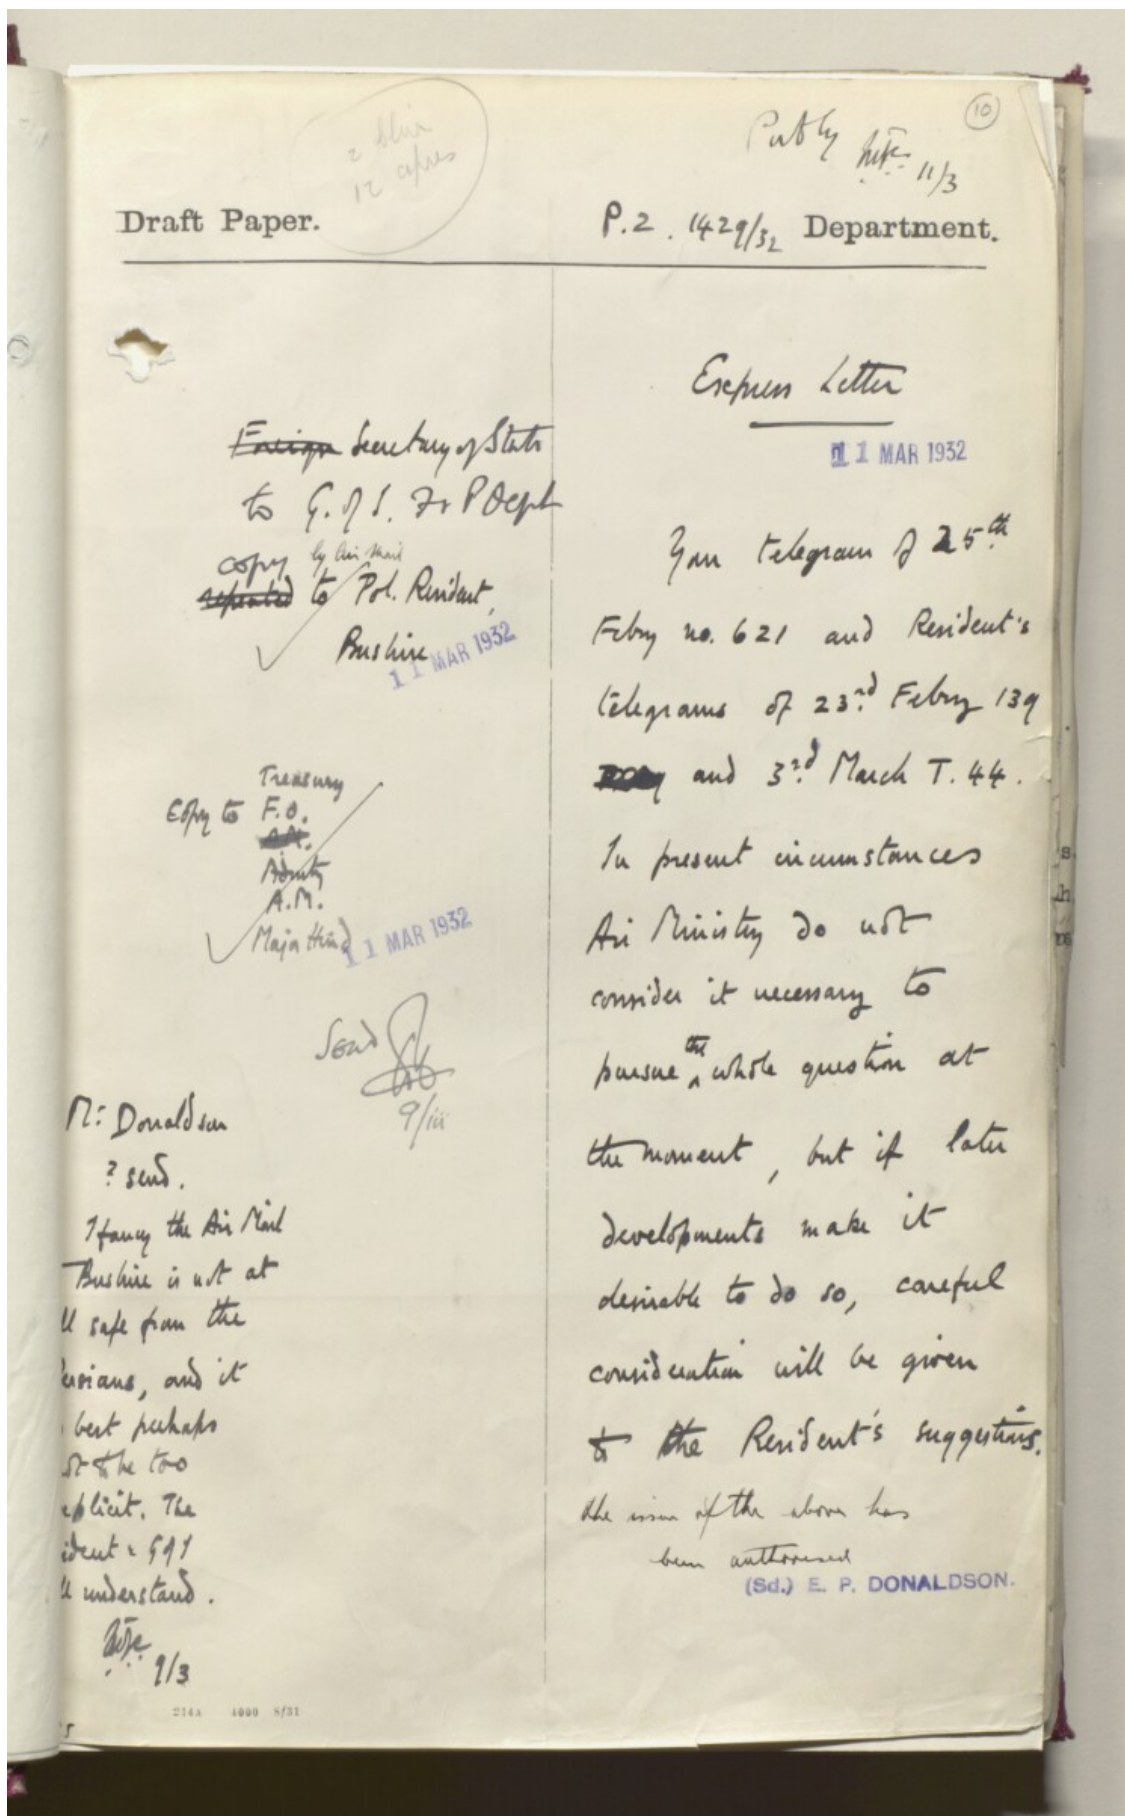 10
11/3
2
12 copies
Draft Paper.
P.Z. 1429/32 Department.
Express Letter
11 MAR 1932
Foreign Secretary of State
to G. of I. F & P Dept
copy by Air Mail
repeated to Pol. Resident,
Bushire
11 MAR 1932
Treasury
Copy to F.O.
Admty
A.M.
Major Hind
11 MAR 1932
Send
9/iii
Mr. Donaldson
? send.
I fancy the Air Mail
Bushire is not at
ll safe from the
ersians, and it
best perhaps
st to be too
explicit. The
ident & G of I
ll understand.
9/3
214A 4000 8/31
Your telegram of 25th
Febry no. 621 and Resident's
telegrams of 23rd Febry 139
and 3rd March T. 44.
In present circumstances
Air Ministry do not
consider it necessary to
pursue the whole question at
the moment, but if later
developments make it
desirable to do so, careful
consideration will be given
to the Resident's suggestions.
The issue of the above has
been authorised
(Sd.) E. P. DONALDSON.